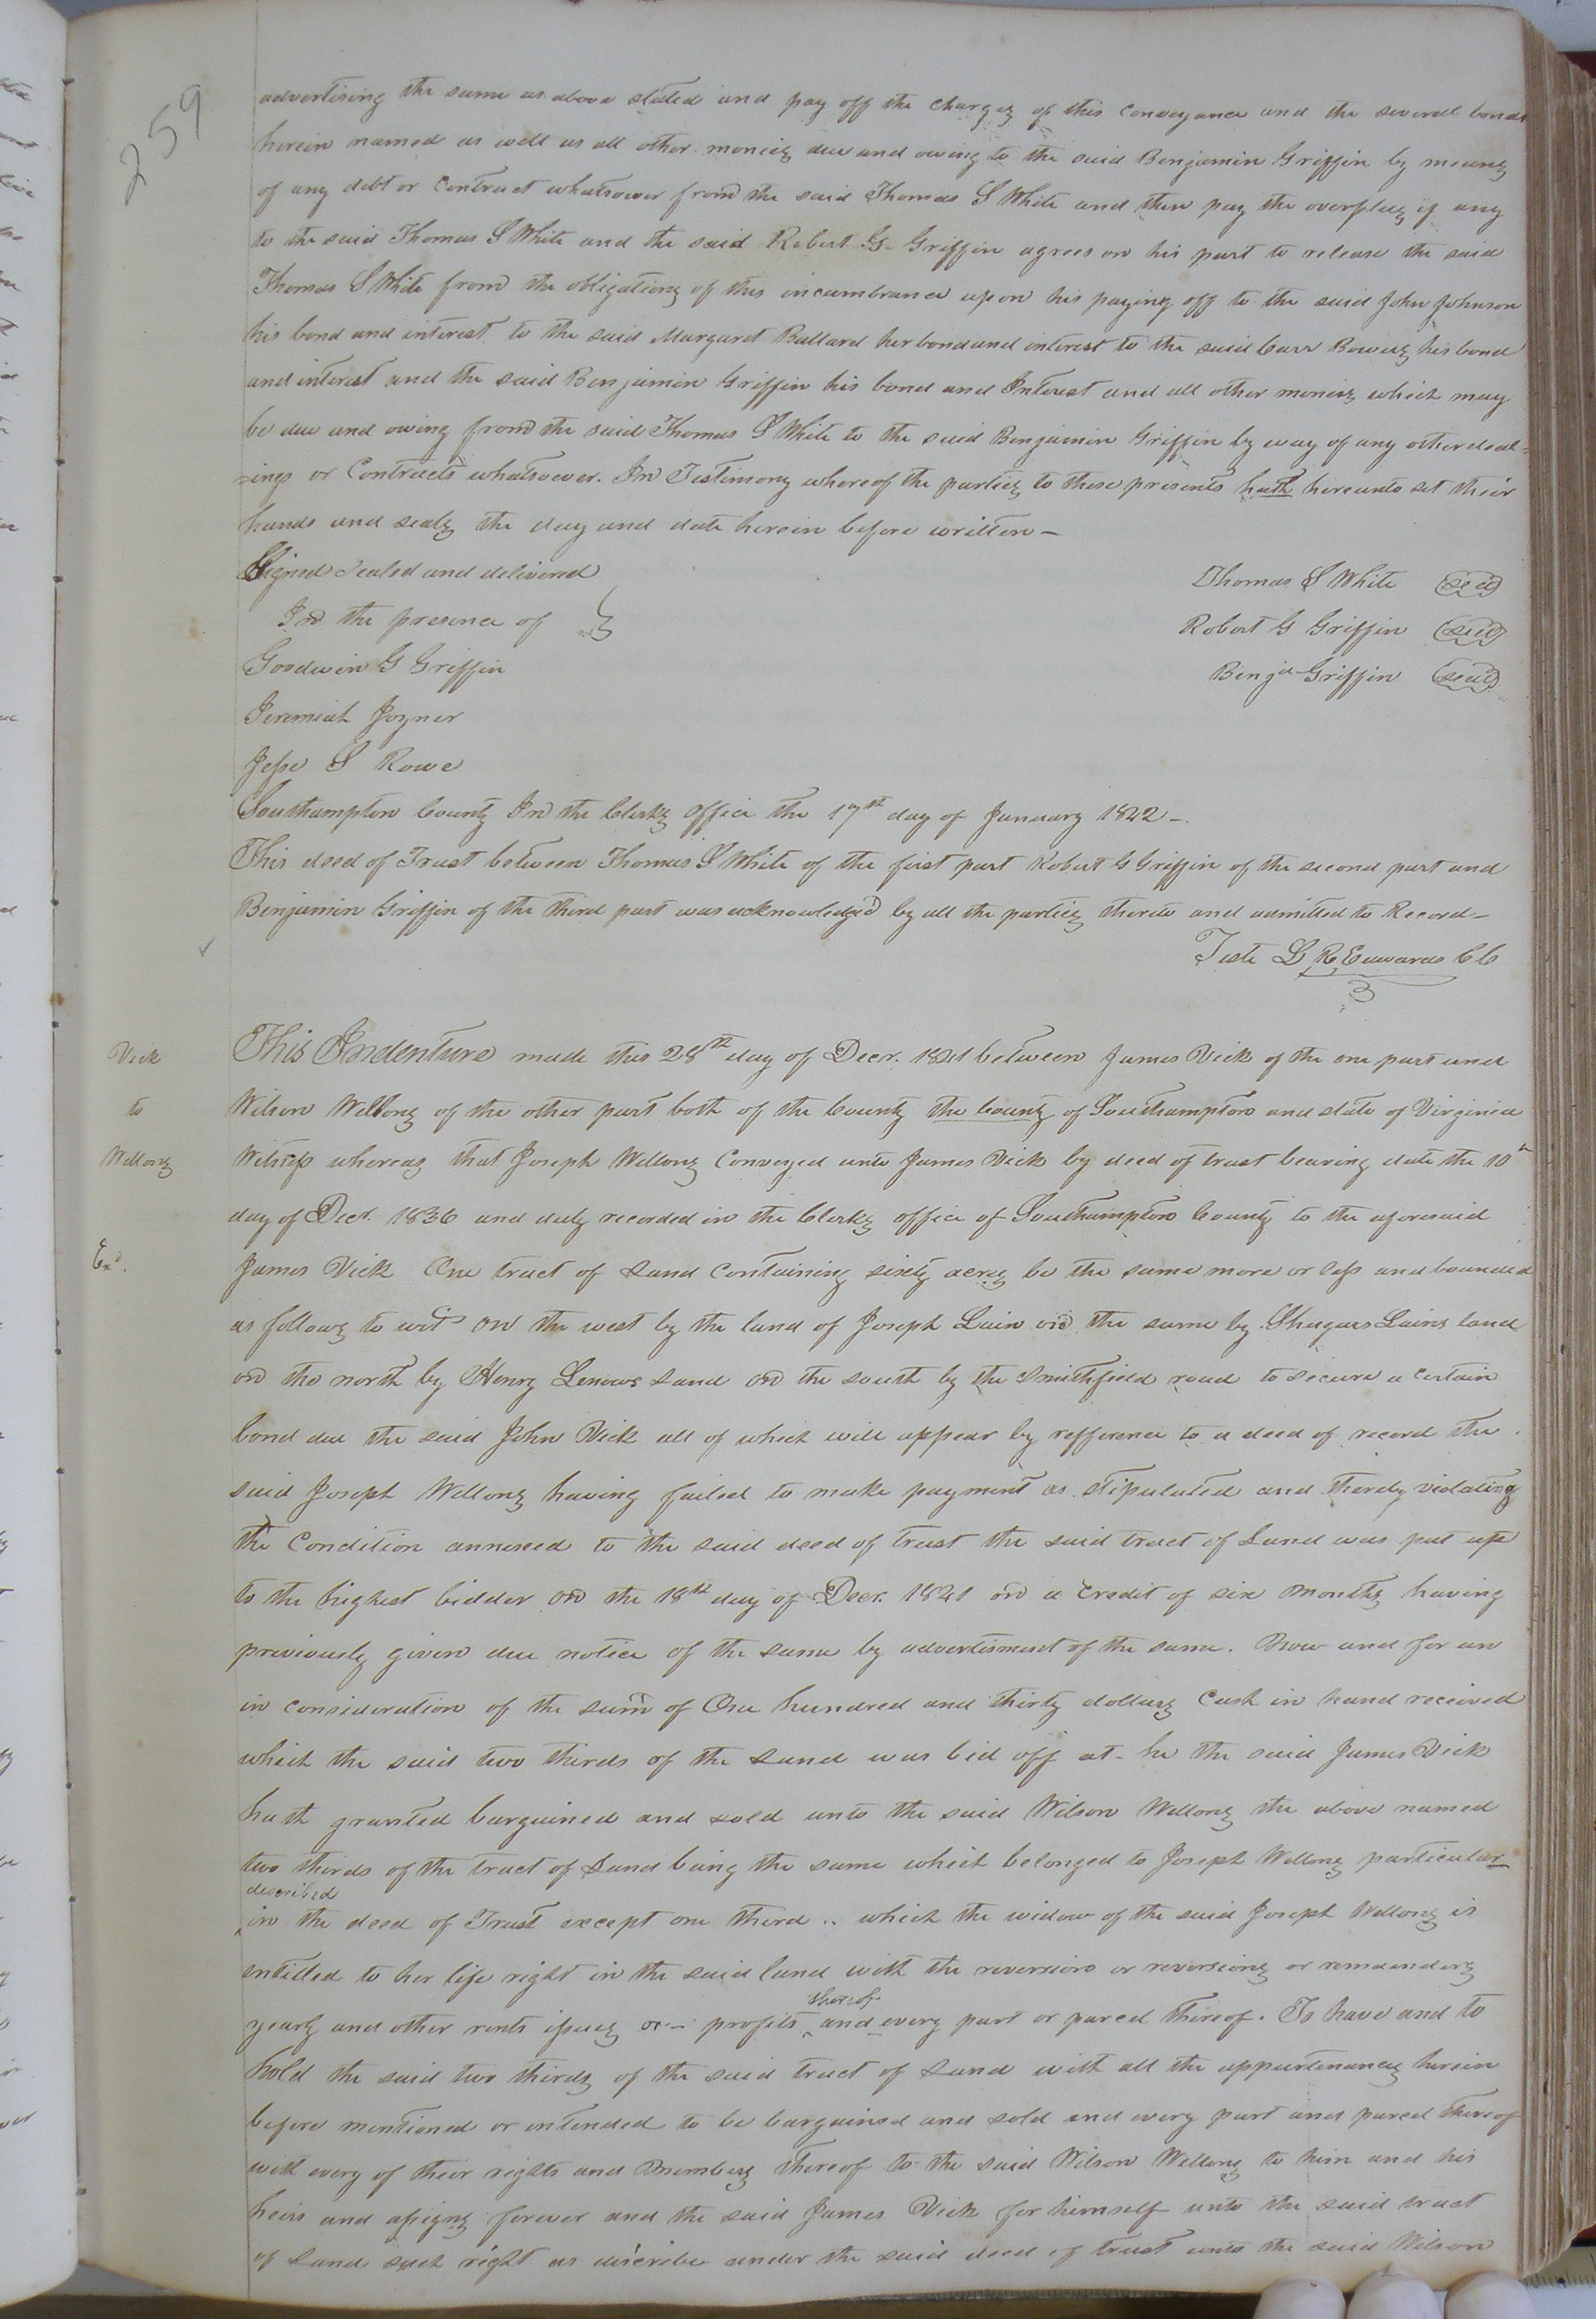 259
advertising the same as above stated and pay off the charges of this conveyance and the severall bonds
herein named as well as all other monies due and owing to the said Benjamin Griffin by means
of any debt or contract whatsoever from the said Thomas S White and then pay the overplus if any
to the said Thomas S White and the said Robert G. Griffin agrees on his part to release the said
Thomas S White from the obligations of this incumbrance upon his paying off to the said John Johnson
his bond and interest to the said Margaret Ballard her bond and interest to the said Carr Bowers his bond
and interest and the said Benjamin Griffin his bond and Interest and all other monies which may
be due and owing from the said Thomas S White to the said Benjamin Griffin by way of any other deal-
-ings or Contracts whatsoever. In Testimony whereof the parties to these presents hath hereunto set their
hands and seals the day and date herein before written —
Signed Sealed and delivered
In the presence of
Goodwin G Griffin
Jeremiah Joyner
Jesse S Rowe
Thomas S White seal
Robert G Griffin seal
Benja Griffin seal
Southampton County In the Clerks office the 17th day of January 1842 —
This deed of Trust between Thomas S White of the first part Robert G Griffin of the second part and
Benjamin Griffin of the third part was acknowledged by all the parties thereto and admitted to Record —
Teste L R Edwards CC
Vick
to
Wellons
Exd.
This Indenture made this 28th day of Decr. 1841 between James Vick of the one part and
Wilson Wellons of the other part both of the County the County of Southampton and state of Virginia
Witness whereas that Joseph Wellons Conveyed unto James Vick by deed of trust bearing date the 10th
day of Decr. 1836 and duly recorded in the Clerks office of Southampton County to the aforesaid
James Vick One tract of Land Containing sixty acres be the same more or less and bounded
as follows to wit On the west by the land of Joseph Lain on the same by Lains land
on the north by Henry Lenows Land on the south by the Smithfield road to secure a certain
bond due the said John Vick all of which will appear by refference to a deed of record the
said Joseph Wellons having failed to make payment as stipulated and thereby violating
the Condition annexed to the said deed of trust the said tract of Land was put up
to the highest bidder on the 18th day of Decr. 1841 on a credit of six months having
previously given due notice of the same by advertisment of the same. Now and for an
in consideration of the sum of One hundred and thirty dollars Cash in hand received
which the said two thirds of the Land was bid off at — he the said James Vick
hath granted bargained and sold unto the said Wilson Wellons the above named
two thirds of the tract of Land being the same which belonged to Joseph Wellons particular
described
in the deed of Trust except one third .. which the widow of the said Joseph Wellons is
entitled to her life right in the said land with the reversion or reversions or remainders
thereof
yearly and other rents issues or — profits and every part or parcel thereof. To have and to
hold the said two thirds of the said tract of Land with all the appurtenances herein
before mentioned or intended to be bargained and sold and every part and parcel thereof
with every of their rights and Members thereof to the said Wilson Wellons to him and his
heirs and assigns forever and the said James Vick for himself unto the said tract
of Land such right as describe under the said deed of trust unto the said Wilson